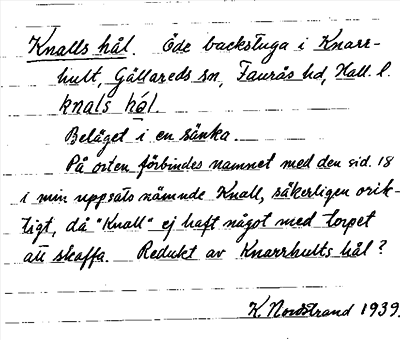 Knalls hål. Öde backstuga i Knarr-
hult, Gällareds sn, Faurås hd, Hall. l.
knals hål.
Beläget i en sänka.
På orten förbindes namnet med den sid. 18
i min uppsats nämnde Knall, säkerligen orik-
tigt, då "Knall" ej haft något med torpet
att skaffa. Redukt av Knarrhults hål?
K. Nordstrand 1939.